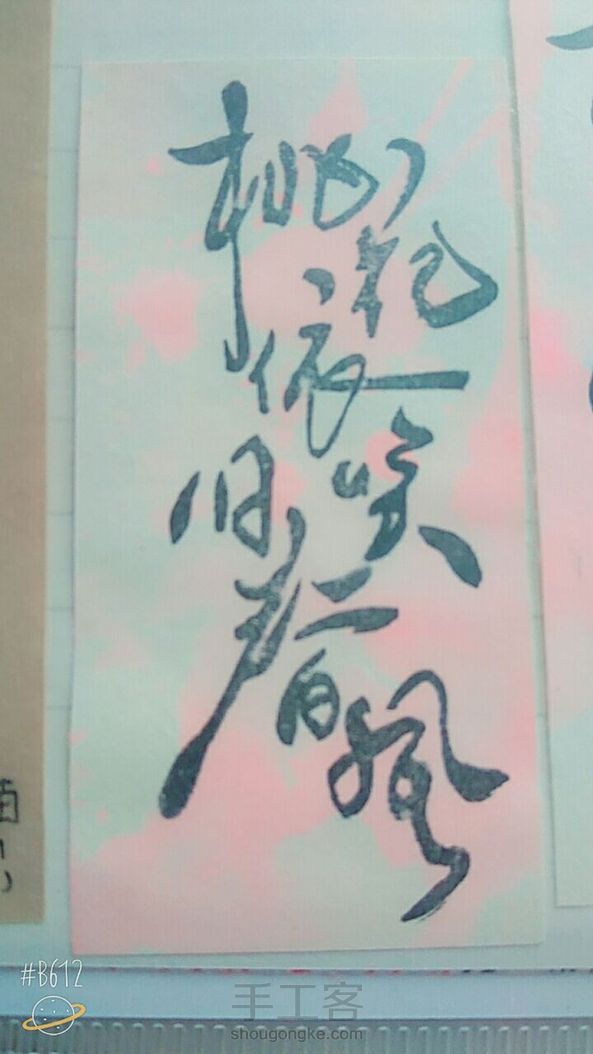 桃花依旧笑春风
#B612
手工客
shougongke.com